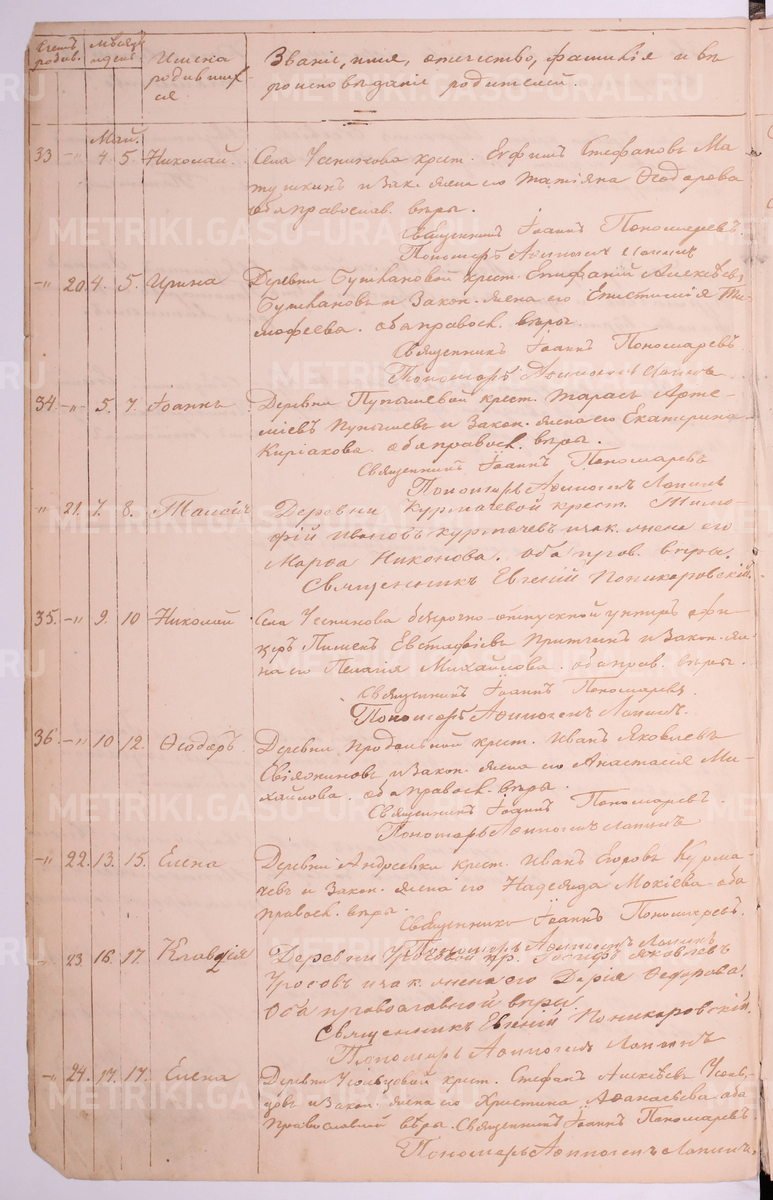 Счетъ родив.
Мѣсяцъ и день
Имена родившихся
Званіе, имя, отчество, фамилія и вѣроисповѣданіе родителей.
Май.
33 -"- 4. 5. Николай. Села крест. Евфимъ Стефановъ Ма-
тушкинъ и зак. жена его Татіяна Ѳеодорова
оба православ. вѣры.
Священникъ Іоаннъ Пономаревъ.
Пономарь Аѳиногенъ Лапинъ
-"- 20. 4. 5. Ирина Деревни Бушкановой крест. Епифаній Алексѣевъ
Бушкановъ и Закон. жена его Епистимія Ти-
мофеева. оба правосл. вѣры.
Священникъ Іоаннъ Пономаревъ
Пономарь Аѳиногенъ Лапинъ
34. -"- 5. 7. Іоаннъ Деревни Пупышевой крест. Тарасъ Арте-
міевъ Пупышевъ и Закон. жена его Екатерина
Киріакова. оба правосл. вѣры.
Священникъ Іоаннъ Пономаревъ
Пономарь Аѳиногенъ Лапинъ
" 21. 7. 8. Таисія Деревни Курмачевой крест. Тимо-
фій Ивановъ Курмачевъ и зак. жена его
Марѳа Никонова. оба прав. вѣры.
Священникъ Евгеній Поникаровскій.
35. -"- 9. 10 Николай Села безсрочно-отпускной унтеръ офи-
церъ Пименъ Евстафіевъ и Закон. же-
на его Пелагія Михайлова. оба прав. вѣры.
Священникъ Іоаннъ Пономаревъ
Пономарь Аѳиногенъ Лапинъ.
36. -"- 10 12. Ѳеодоръ. Деревни Продольной крест. Иванъ Яковлевъ
и Закон. жена его Анастасія Ми-
хайлова. оба правосл. вѣры.
Священникъ Іоаннъ Пономаревъ.
Пономарь Аѳиногенъ Лапинъ
-"- 22. 13. 15. Елена Деревни Андреевки крест. Иванъ Егоровъ Курма-
чевъ и Закон. жена его Надежда Мокіева оба
правосл. вѣры.
Священникъ Іоаннъ Пономаревъ.
Пономарь Аѳиногенъ Лапинъ
-"- 23. 16. 17. Клавдія Деревни Уросовой кр. Іосифъ Яковлевъ
Уросовъ и зак. жена его Дарія Федорова.
Оба православной вѣры.
Священникъ Евгеній Поникаровскій.
Пономарь Аѳиногенъ Лапинъ
-"- 24. 17. 17. Елена Деревни Усольцовой крест. Стефанъ Алексѣевъ Усоль-
цовъ и Закон. жена его Христина Аѳанасьева. оба
Православной вѣры. Священникъ Іоаннъ Пономаревъ
Пономарь Аѳиногенъ Лапинъ.
METRIKI.GASU-URAL.RU